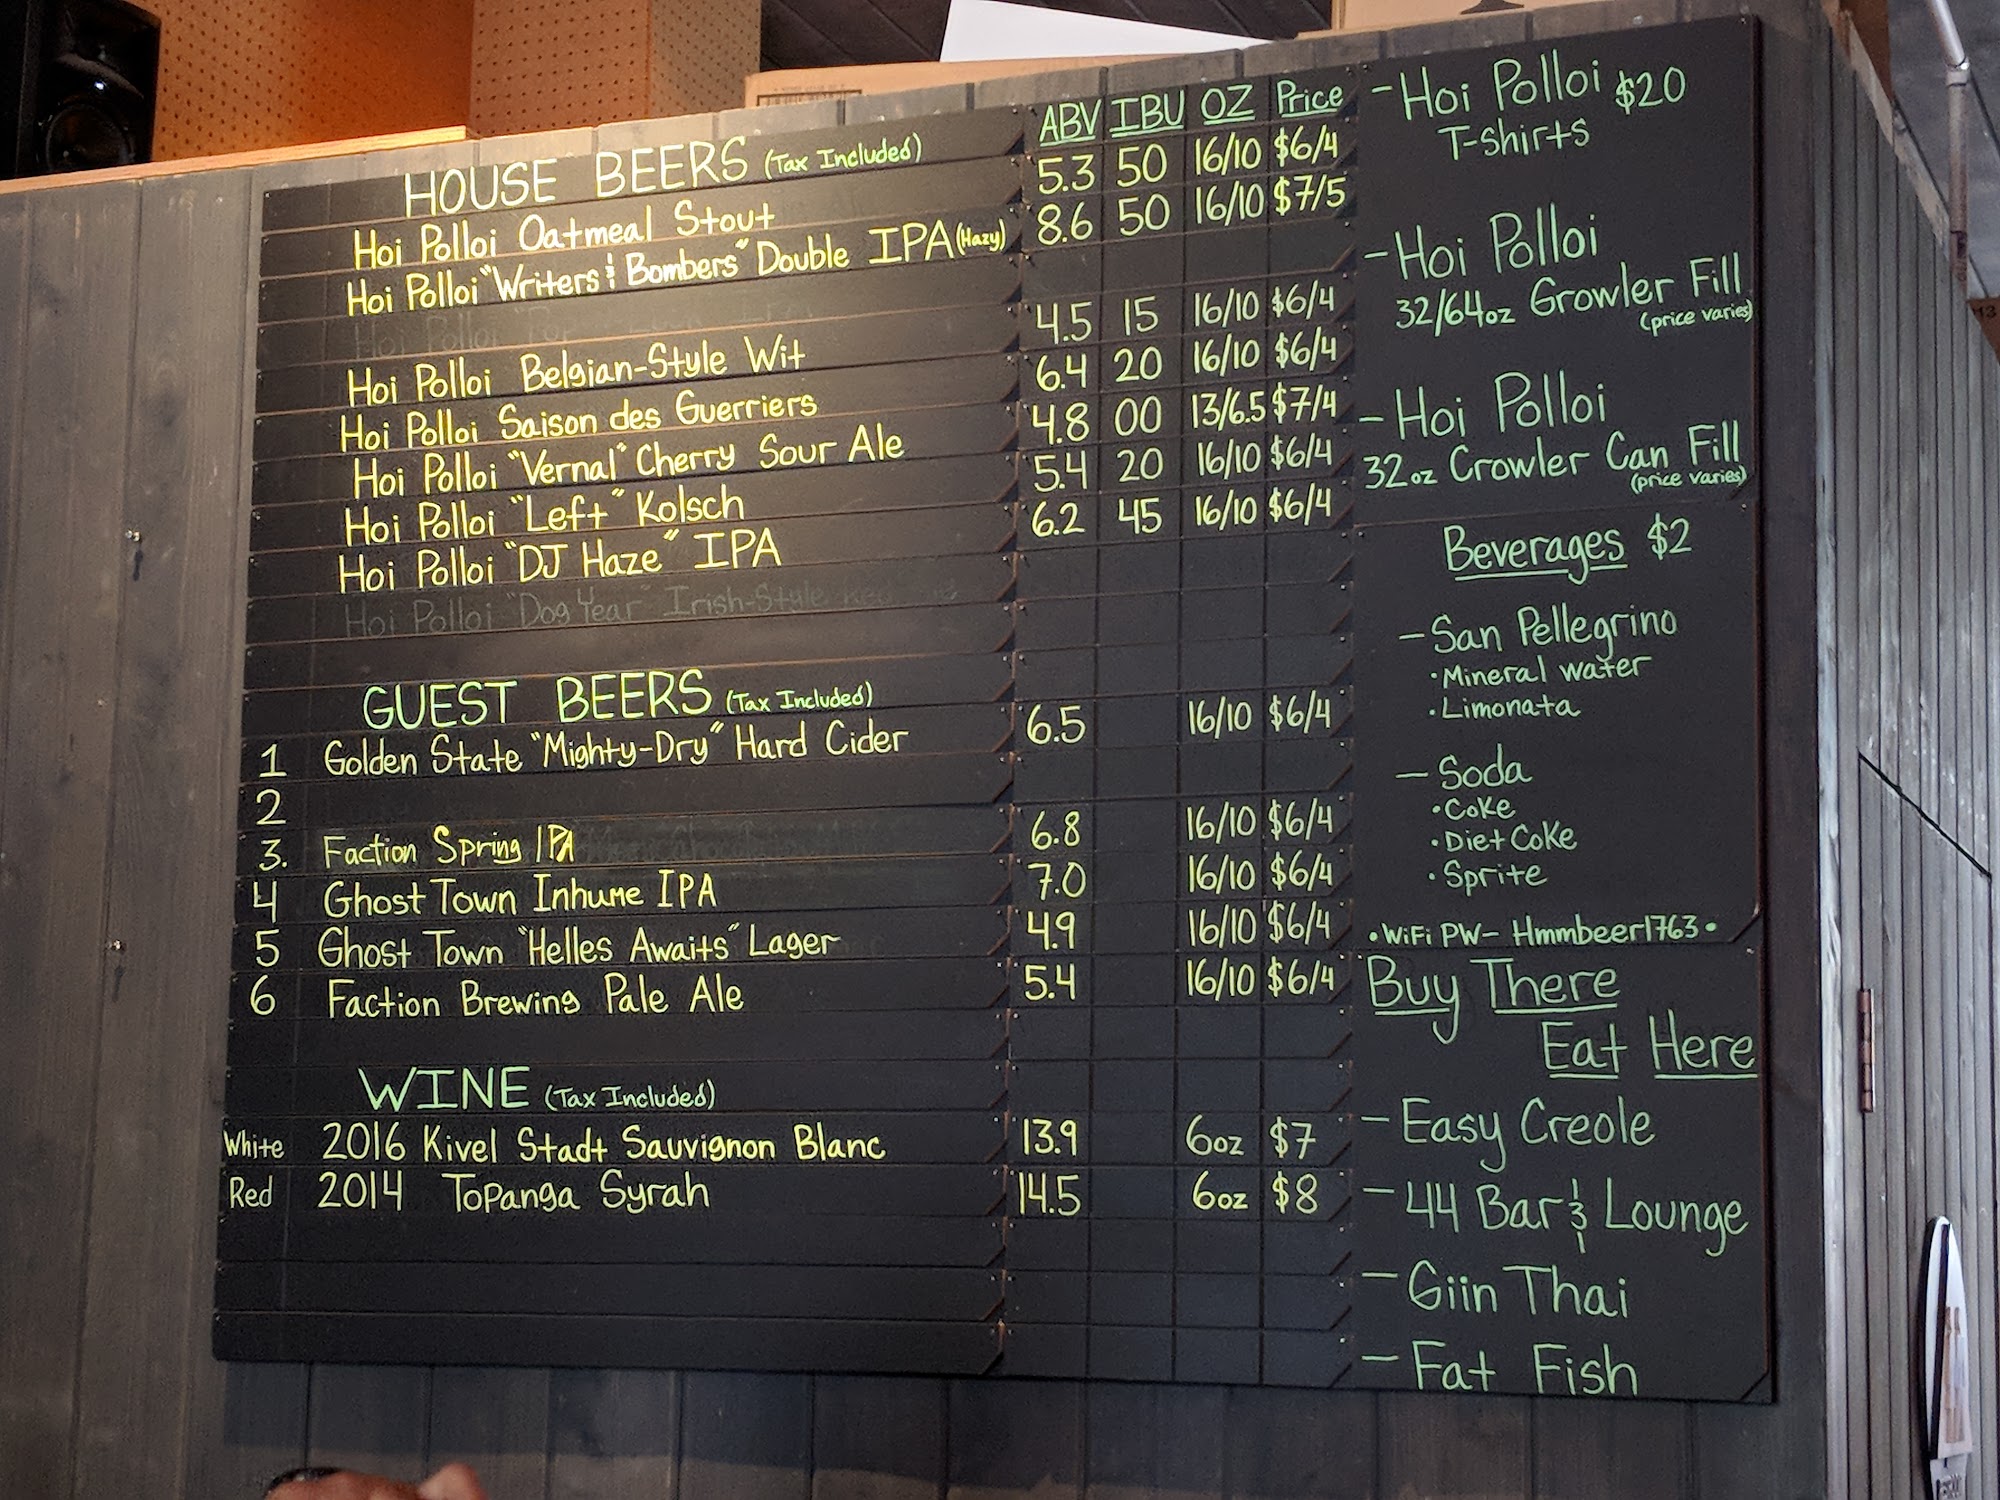 HOUSE BEERS (Tax Included) ABV IBU OZ Price
Hoi Polloi Oatmeal Stout 5.3 50 16/10 $6/4
Hoi Polloi "Writers & Bombers" Double IPA (Hazy) 8.6 50 16/10 $7/5
Hoi Polloi
Hoi Polloi Belgian-Style Wit 4.5 15 16/10 $6/4
Hoi Polloi Saison des Guerriers 6.4 20 16/10 $6/4
Hoi Polloi "Vernal" Cherry Sour Ale 4.8 00 13/6.5 $7/4
Hoi Polloi "Left" Kolsch 5.4 20 16/10 $6/4
Hoi Polloi "DJ Haze" IPA 6.2 45 16/10 $6/4
Hoi Polloi "Dog Year" Irish-Style Red
GUEST BEERS (Tax Included)
1 Golden State "Mighty-Dry" Hard Cider 6.5 16/10 $6/4
2
3. Faction Spring IPA 6.8 16/10 $6/4
4 Ghost Town Inhume IPA 7.0 16/10 $6/4
5 Ghost Town "Helles Awaits" Lager 4.9 16/10 $6/4
6 Faction Brewing Pale Ale 5.4 16/10 $6/4
WINE (Tax Included)
White 2016 Kivel Stadt Sauvignon Blanc 13.9 6oz $7
Red 2014 Topanga Syrah 14.5 6oz $8
- Hoi Polloi $20
T-shirts
- Hoi Polloi
32/64oz Growler Fill
(price varies)
- Hoi Polloi
32oz Crowler Can Fill
(price varies)
Beverages $2
- San Pellegrino
• Mineral water
• Limonata
- Soda
• Coke
• Diet Coke
• Sprite
• WiFi PW- Hmmbeer1763 •
Buy There
Eat Here
- Easy Creole
- 44 Bar & Lounge
- Giin Thai
- Fat Fish